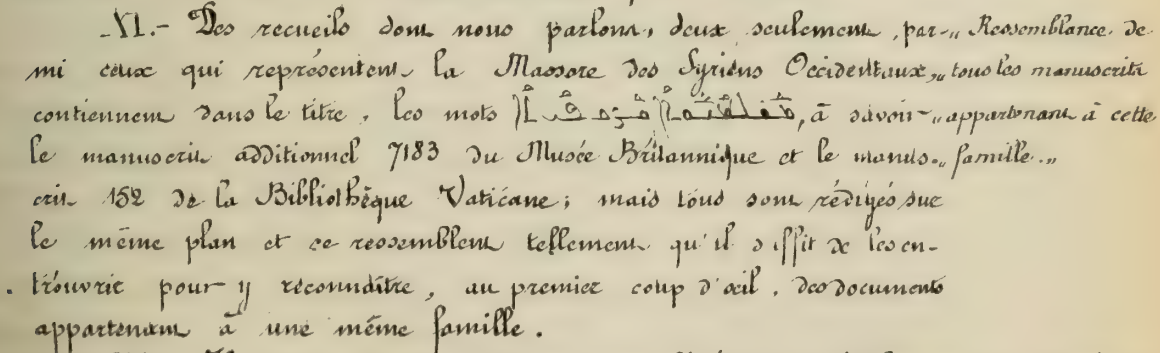 XI.- Des recueils dont nous parlons, deux seulement, par-
mi ceux qui représentent la Massore des Syriens Occidentaux,
contiennent dans le titre, les mots , à savoir
le manuscrit additionnel 7183 du Musée Britannique et le manus-
crit 152 de la Bibliothèque Vaticane; mais tous sont rédigés sur
le même plan et se ressemblent tellement qu'il suffit de les en-
trouvrir pour y reconnaître, au premier coup d'œil, des documents
appartenant à une même famille.
„ Ressemblance de
„ tous les manuscrits
„ appartenant à cette
„ famille. „